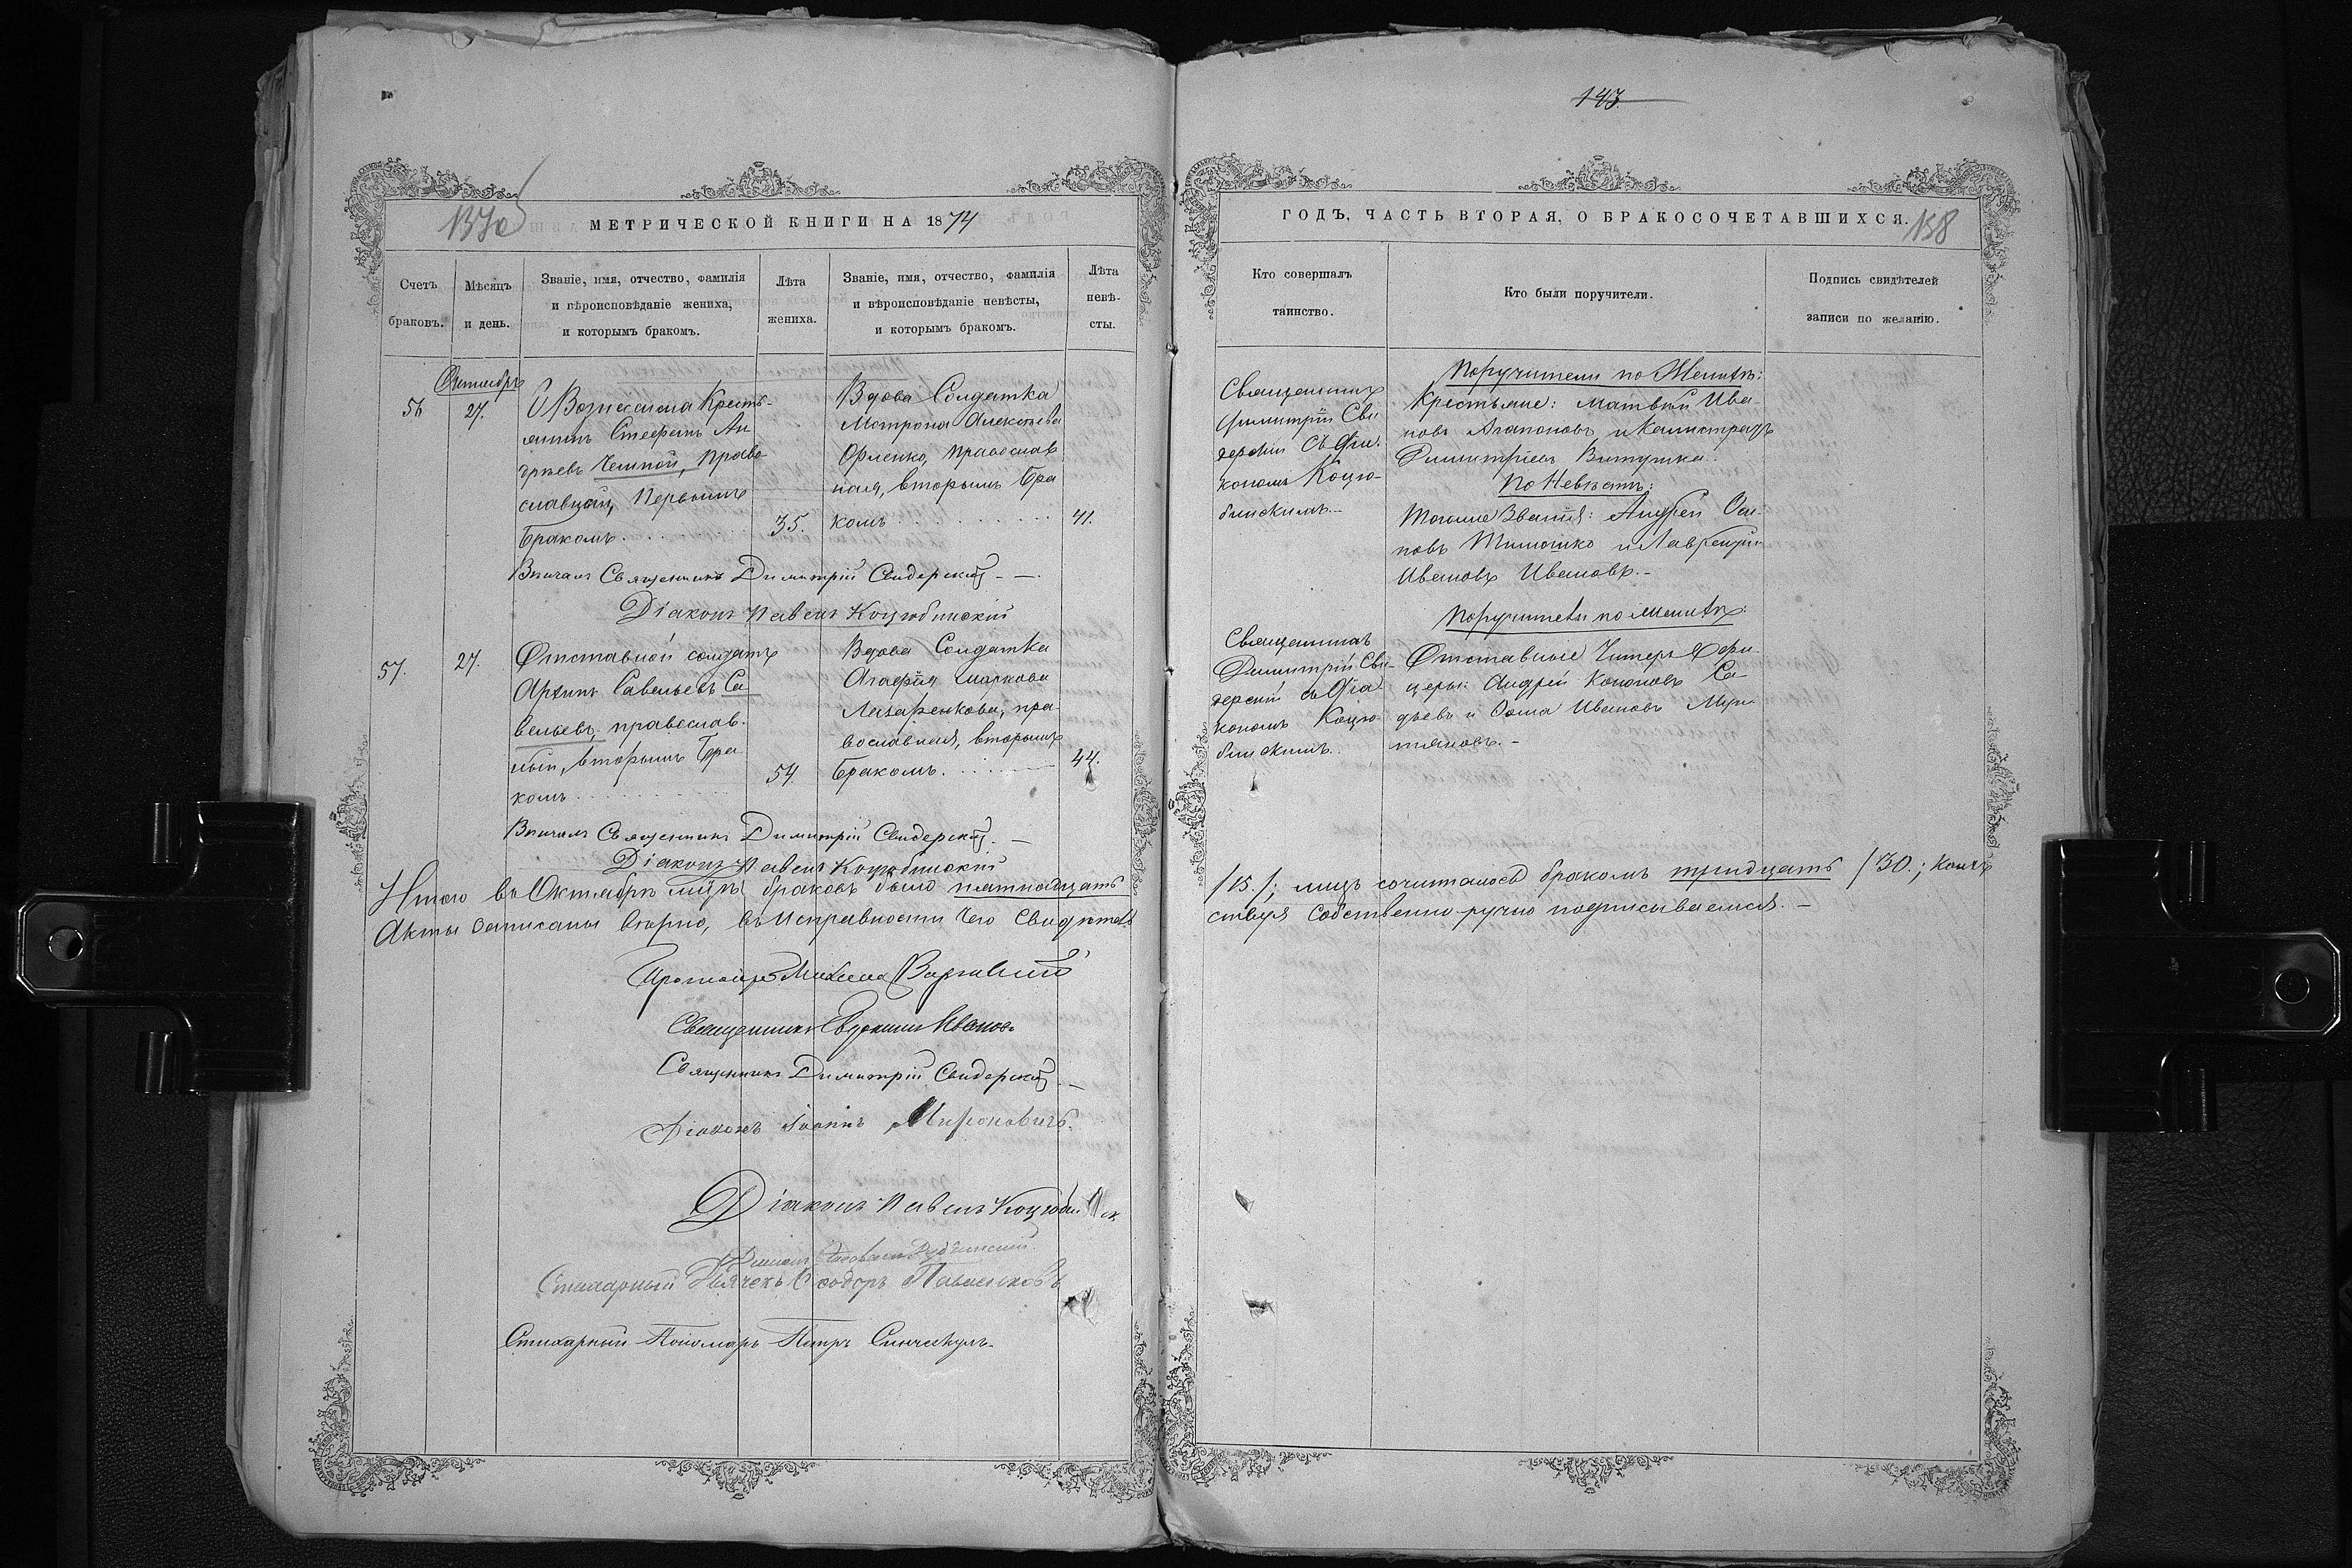 143.
МЕТРИЧЕСКОЙ КНИГИ НА 1874
Счетъ браковъ.
Мѣсяцъ и день.
Званіе, имя, отчество, фамилія
и вѣроисповѣданіе жениха,
и которымъ бракомъ.
Лѣта жениха.
Званіе, имя, отчество, фамилія
и вѣроисповѣданіе невѣсты,
и которымъ бракомъ.
Лѣта невѣ-
сты.
Октябрь
56 27.
Вознесенска Кресть-
янинъ Стефанъ Ан
дреевъ Чепной, Право
славный, Первымъ
Бракомъ. 35.
Вдова Солдатка
Матрона Алексѣева
Орленко, православ
ная, вторымъ бра
комъ 41.
Вѣнчалъ Священникъ Димитрій Свидерскій. —
Діаконъ Павелъ Коцюбинскій
57. 27.
Отставной солдатъ
Архипъ Савельевъ Са
вельевъ, православ.
ный, вторымъ бра
комъ 54.
Вдова Солдатка
Агафія Маркова
Лазаренкова, пра-
вославная, вторымъ
бракомъ. 44.
Вѣнчалъ Священникъ Димитрій Свидерскій. —
Діаконъ Павелъ Коцюбинскій
Итого въ Октябрѣ мцѣ браковъ было пятнадцать
Акты записаны вѣрно, въ исправности чего свидѣтель
Михаилъ
Священникъ Евдокимъ Ивановъ
Священникъ Димитрій Свидерскій. —
Діаконъ Іоаннъ Мироновичъ.
Діаконъ Павелъ Коцюбин ск
Стихарный Дьячекъ Ѳеодоръ
Стихарный Пономарь Петръ
ГОДЪ, ЧАСТЬ ВТОРАЯ, О БРАКОСОЧЕТАВШИХСЯ.
158
Кто совершалъ
таинство.
Кто были поручители.
Подпись свидѣтелей
записи по желанію.
Священникъ
Димитрій Сви
дерскій съ Діа.
кономъ Коцю-
бинскимъ. —
Поручители по Женихѣ:
Крестьяне: Матвѣй Ива-
новъ Агапоновъ и Калистратъ
Димитріевъ Витушка.
По Невѣстѣ:
Того же Званія: Андрей Оси-
повъ Тимошко и Лаврентій
Ивановъ Ивановъ. —
Священникъ
Димитрій Сви-
дерскій съ Діа
кономъ Коцю-
бинскимъ.
Поручители по Женихѣ:
Отставные Унтеръ Офи-
церы: Андрей Кононовъ Са-
дѣевъ и Ѳома Ивановъ
/15./; лицъ сочиталось бракомъ тридцать /30.;
ствуя собственно-ручно подписываемся. —